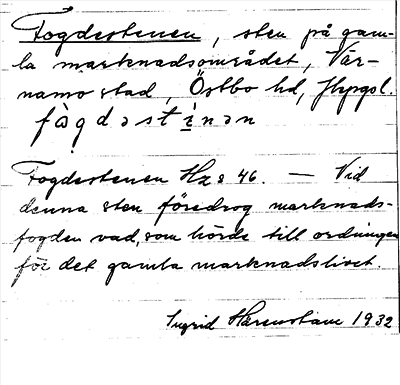 Fogdestenen, sten på gam-
la marknadsområdet, Vär-
namo stad, Östbo hd, Jkpgsl.
fȧgdəstinən
Fogdestenen Hz s 46. — Vid
denna sten föredrog marknads-
fogden vad, som hörde till ordningen
för det gamla marknadslivet.
Ingrid Härenstam 1932